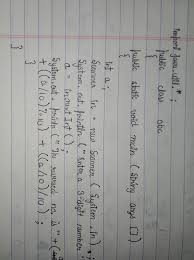 import java.util.*;
public class abc
{
public static void main (String args [])
{
int a;
Scanner in = new Scanner (System.in);
System.out.println ("Enter a 3-digit number
a = in.nextInt();
System.out.println ("The reversed no. is" + (
+ ((a/10)%10) + ((a/10)/10);
}